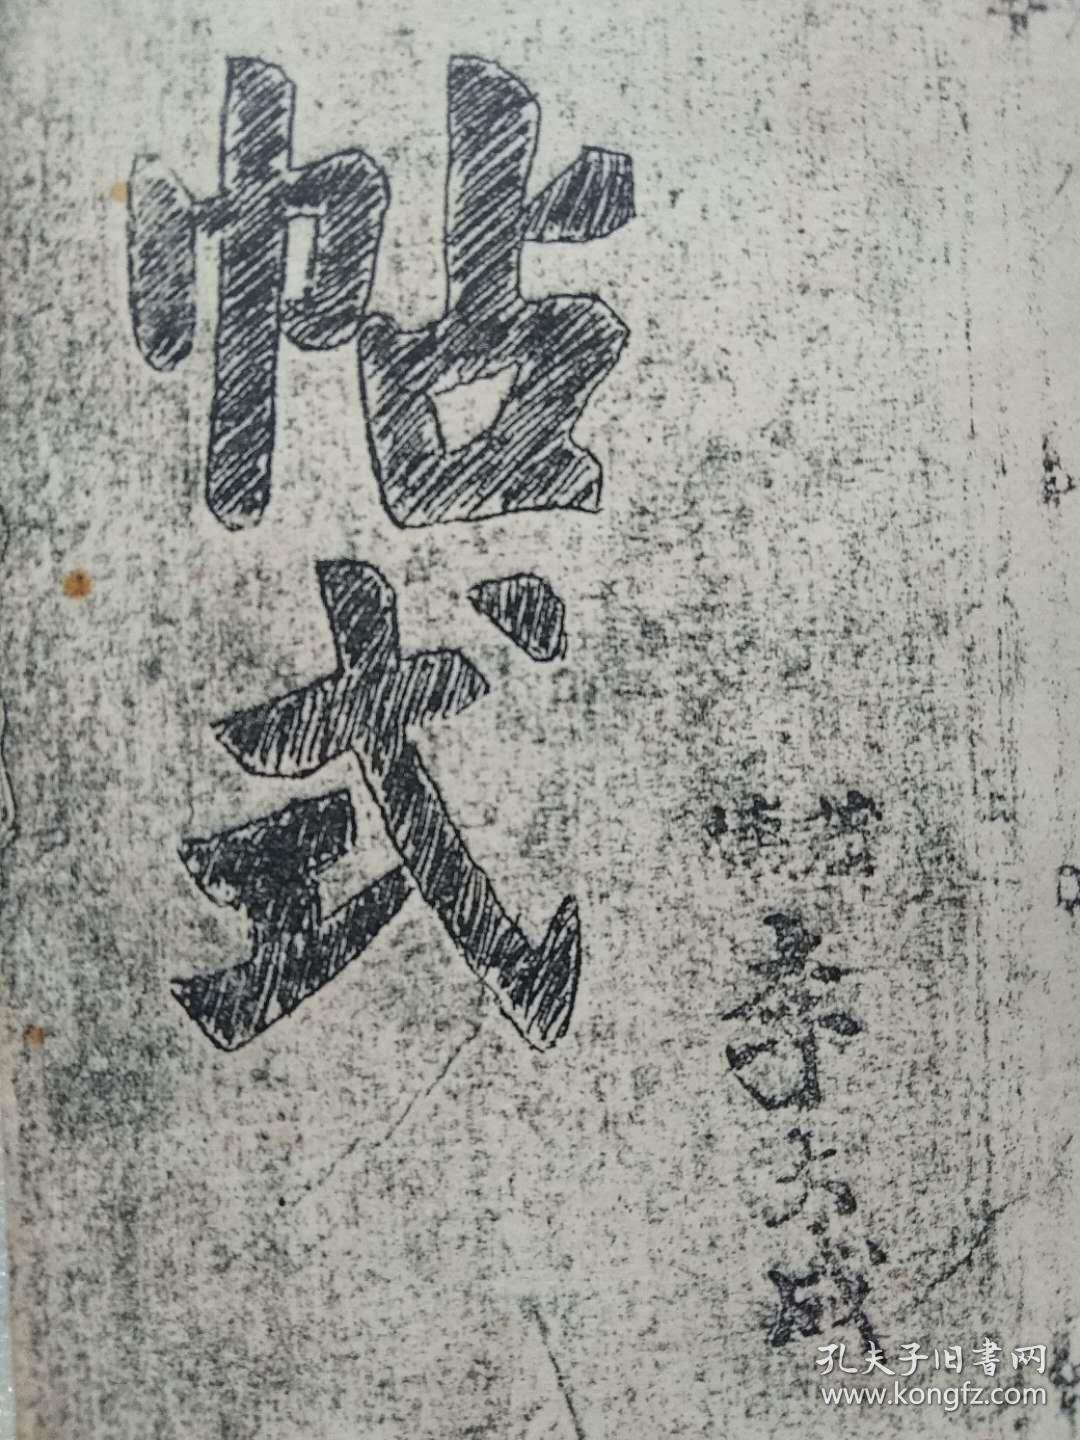 帖式
李木成
孔夫子旧書网
www.kongfz.com